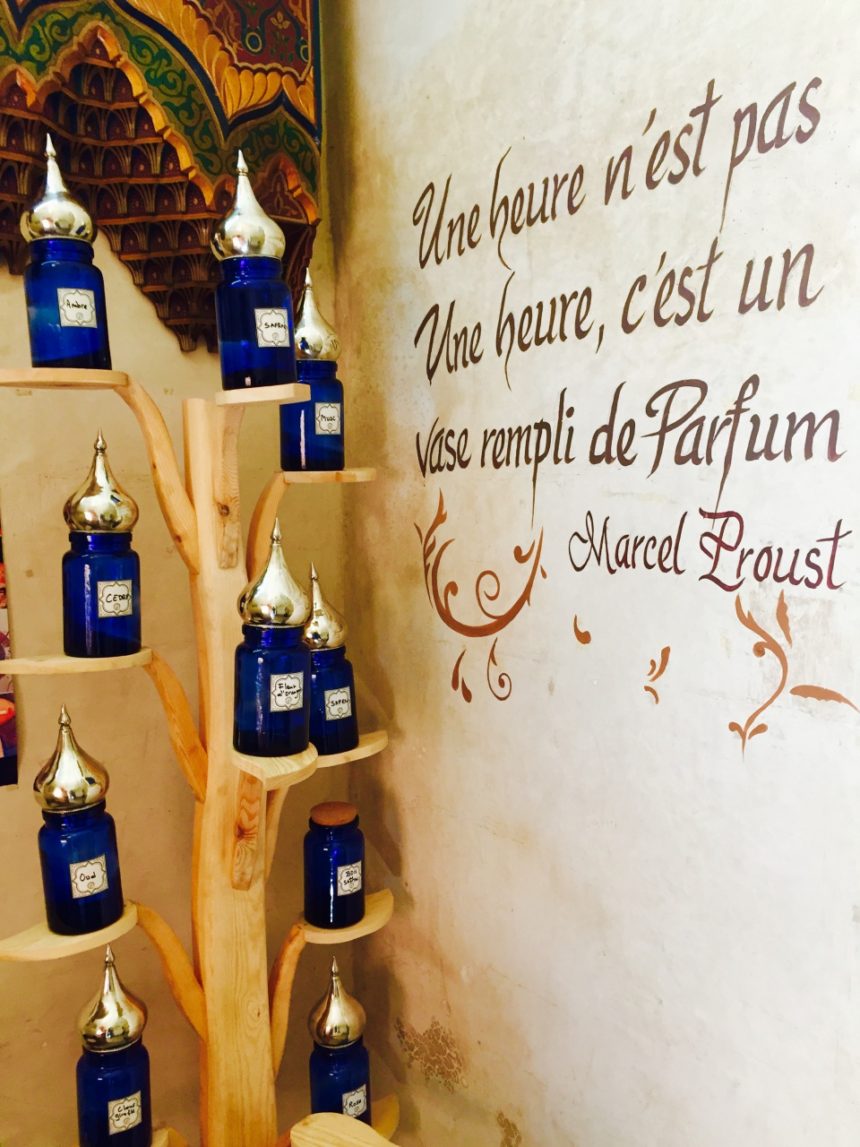 Une heure n'est pas
Une heure, c'est un
vase rempli de Parfum
Marcel Proust
Ambre
SAFRAN
Musc
CEDRE
Fleur
d'oranger
SAFRAN
Oud
Clous
girofle
Rose